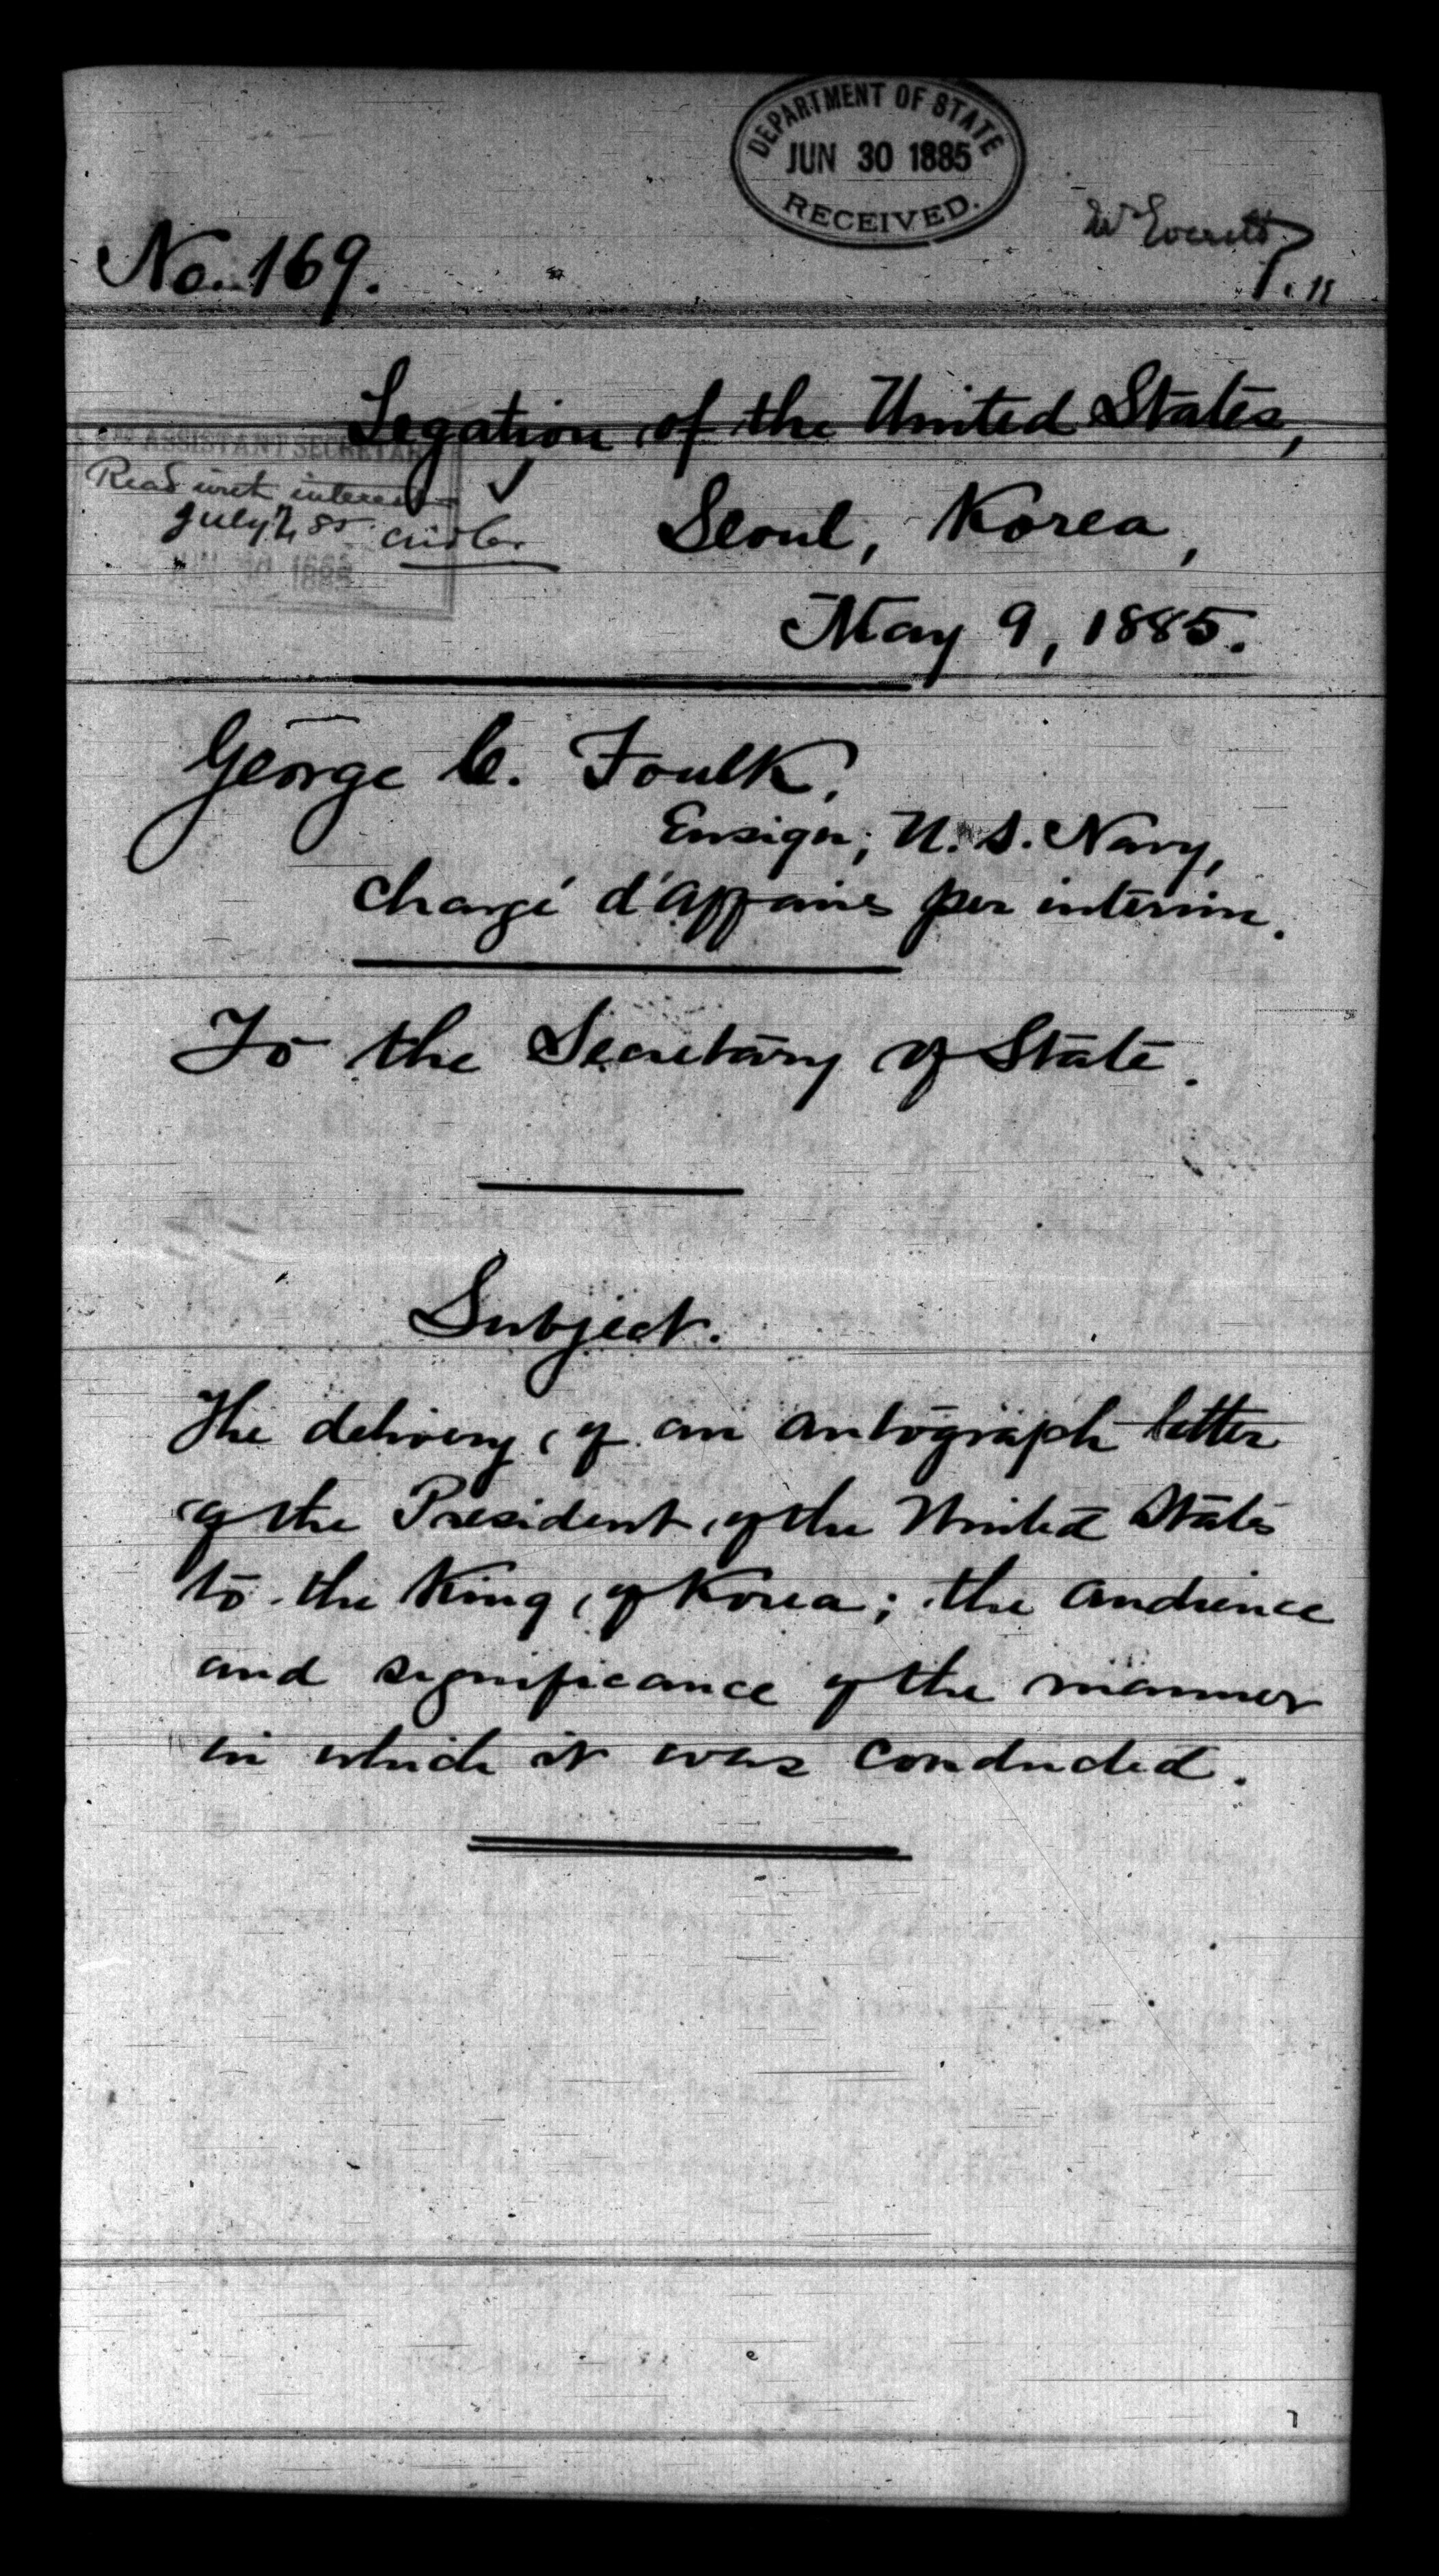 DEPARTMENT OF STATE
JUN 30 1885
RECEIVED.
Mr Everett
No. 169.
Legation of the United States,
ASSISTANT SECRETARY
Read with interest
July 7, 85.
Seoul, Korea,
May 9, 1885.
George C. Foulk,
Ensign, U. S. Navy,
Chargé d'affaires per interim.
To the Secretary of State.
Subject.
The delivery of an autograph letter
of the President of the United States
to the King of Korea; the audience
and significance of the manner
in which it was conducted.